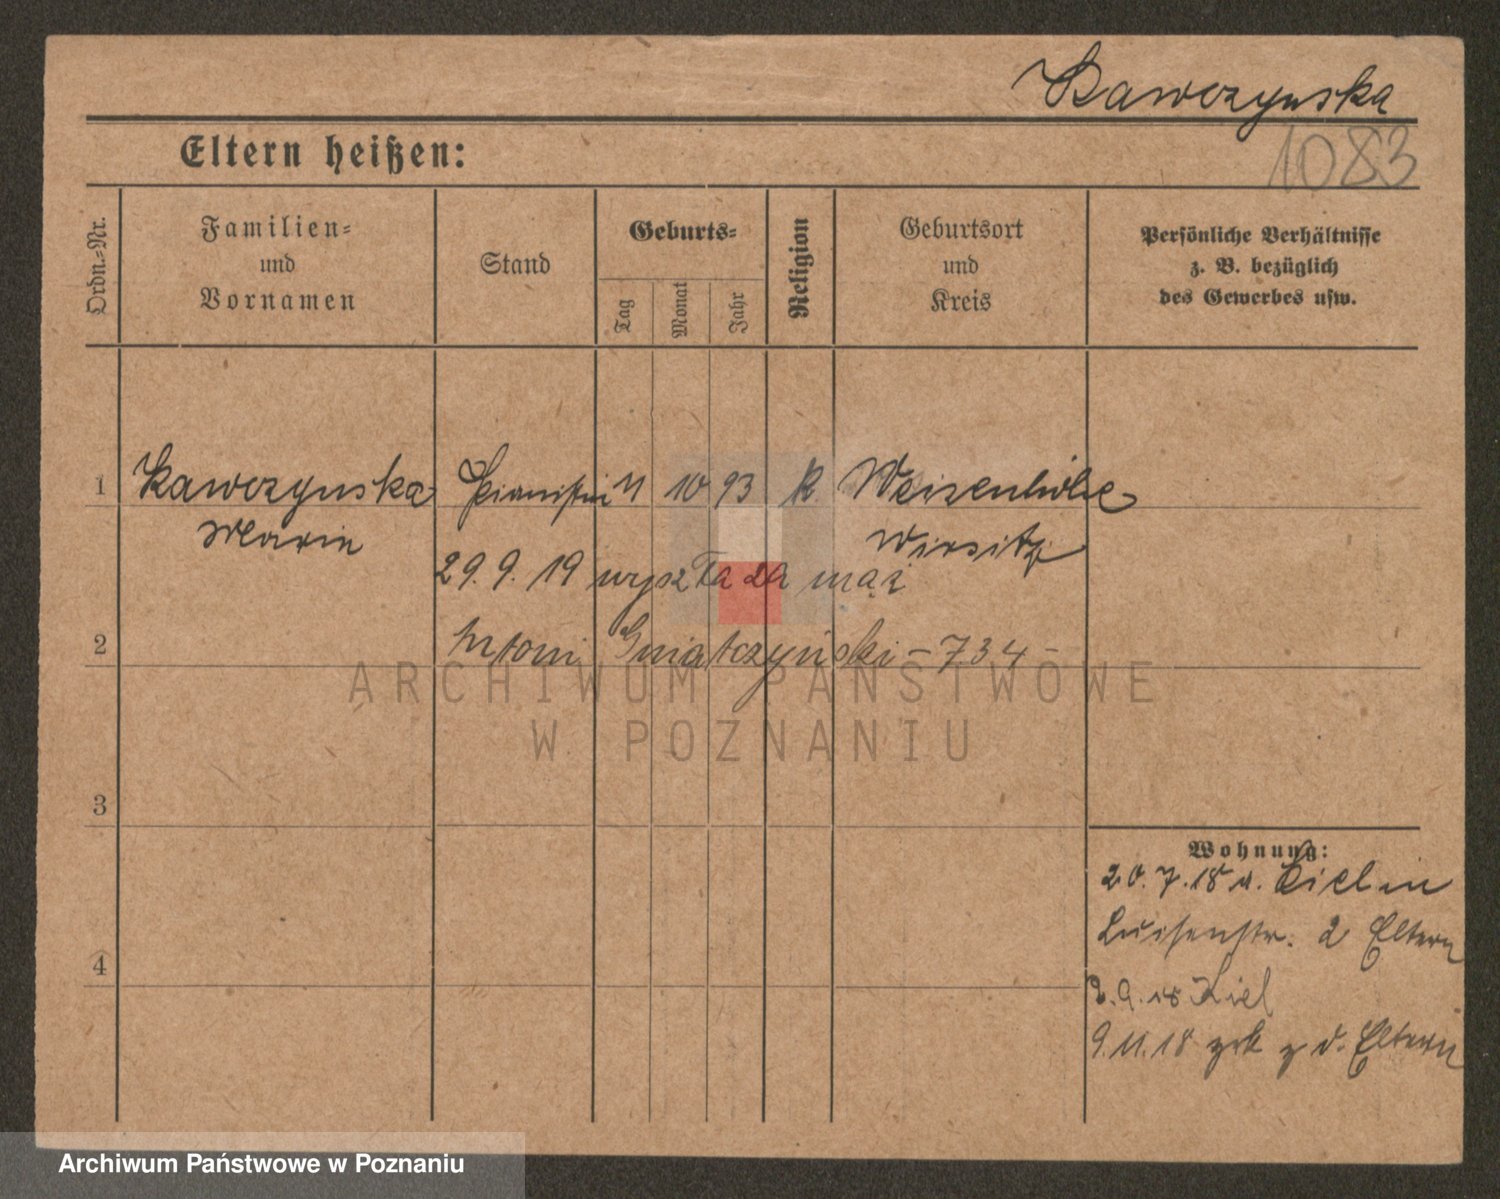 Kawczynska
1083
Eltern heißen:
Ordn.-Nr.
Familien-
und
Vornamen
Stand
Geburts-
Tag
Monat
Jahr
Religion
Geburtsort
und
Kreis
Persönliche Verhältnisse
z. B. bezüglich
des Gewerbes usw.
1 Kawczynska Pianistin 11 10 93 K Weisenhöhe
Marie Wirsitz
29. 9. 19 wyszła za mąż
2 Antoni Gniatczyński – 734 –
3
4
Wohnung:
20. 7. 18 v. Kiel in
Luisenstr. 2 Eltern
2. 9. 18 Kiel
9. 11. 18 zrk z d. Eltern
ARCHIWUM PAŃSTWOWE
W POZNANIU
Archiwum Państwowe w Poznaniu